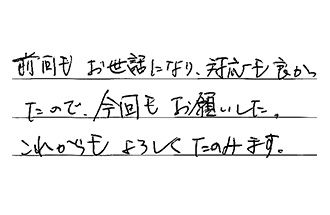 前回も お世話になり、対応も良かっ
たので、今回も お願いした。
これからも よろしくたのみます。